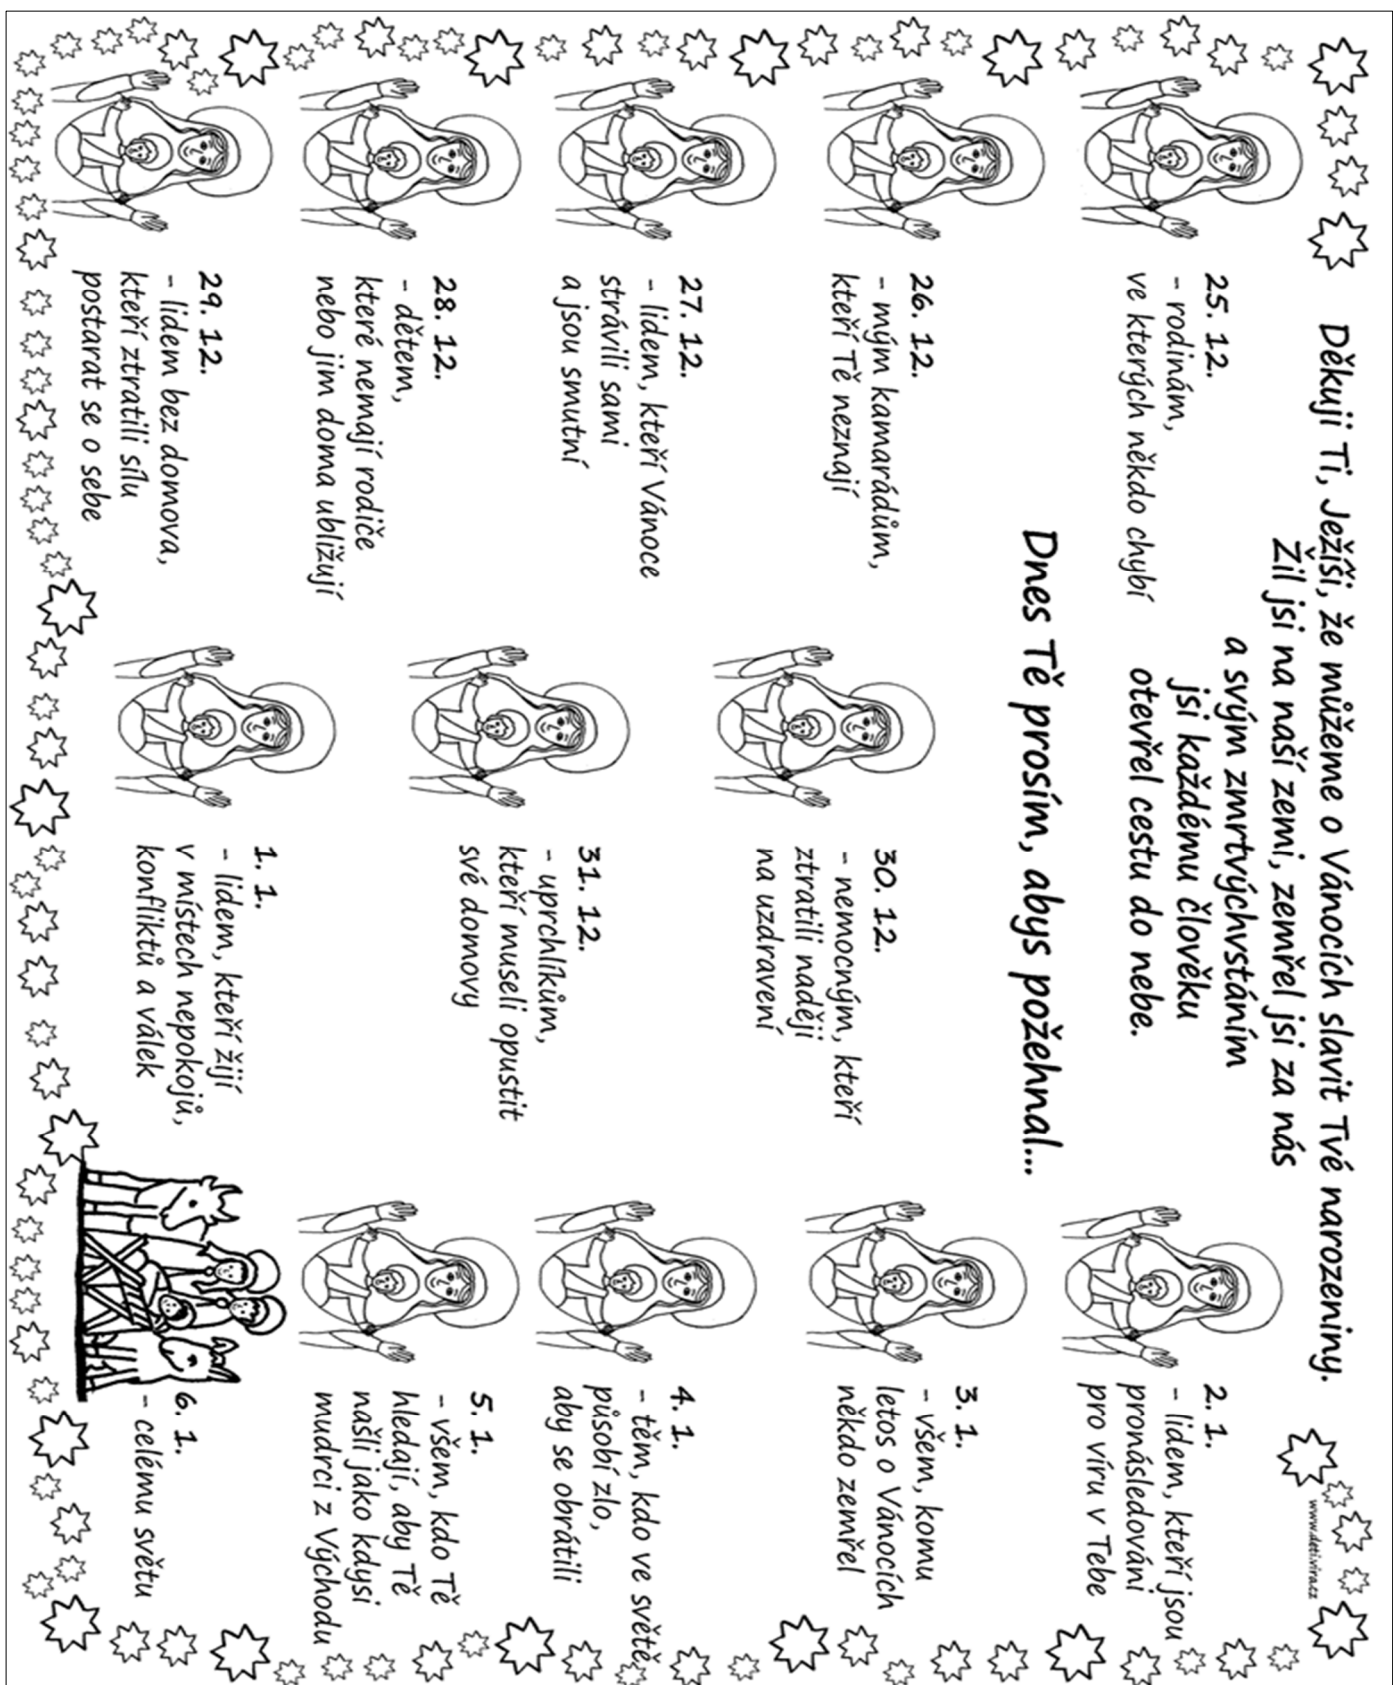 Děkuji Ti, Ježíši, že můžeme o Vánocích slavit Tvé narozeniny.
Žil jsi na naší zemi, zemřel jsi za nás
a svým zmrtvýchvstáním
jsi každému člověku
otevřel cestu do nebe.
Dnes Tě prosím, abys požehnal...
25. 12.
- rodinám,
ve kterých někdo chybí
26. 12.
- mým kamarádům,
kteří Tě neznají
27. 12.
- lidem, kteří Vánoce
strávili sami
a jsou smutní
28. 12.
- dětem,
které nemají rodiče
nebo jim doma ubližují
29. 12.
- lidem bez domova,
kteří ztratili sílu
postarat se o sebe
30. 12.
- nemocným, kteří
ztratili naději
na uzdravení
31. 12.
- uprchlíkům,
kteří museli opustit
své domovy
1. 1.
- lidem, kteří žijí
v místech nepokojů,
konfliktů a válek
2. 1.
- lidem, kteří jsou
pronásledováni
pro víru v Tebe
3. 1.
- všem, komu
letos o Vánocích
někdo zemřel
4. 1.
- těm, kdo ve světě
působí zlo,
aby se obrátili
5. 1.
- všem, kdo Tě
hledají, aby Tě
našli jako kdysi
mudrci z Východu
6. 1.
- celému světu
www.deti.vira.cz